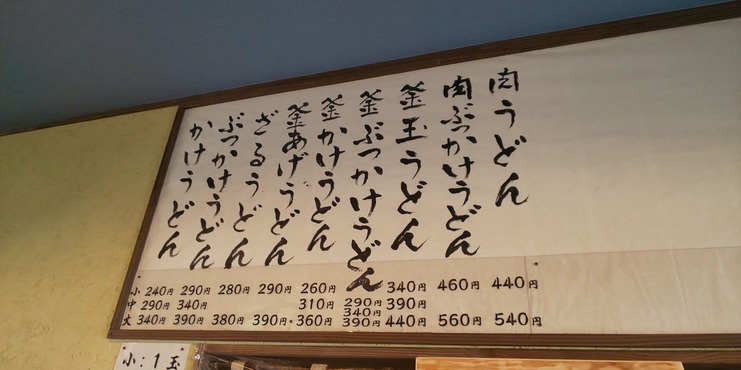 肉うどん
肉ぶっかけうどん
釜玉うどん
釜ぶっかけうどん
釜かけうどん
釜あげうどん
ざるうどん
ぶっかけうどん
かけうどん
小 240円 290円 280円 290円 260円 340円 460円 440円
中 290円 340円 310円 290円 390円
340円
大 340円 390円 380円 390円・360円 390円 440円 560円 540円
小:1玉